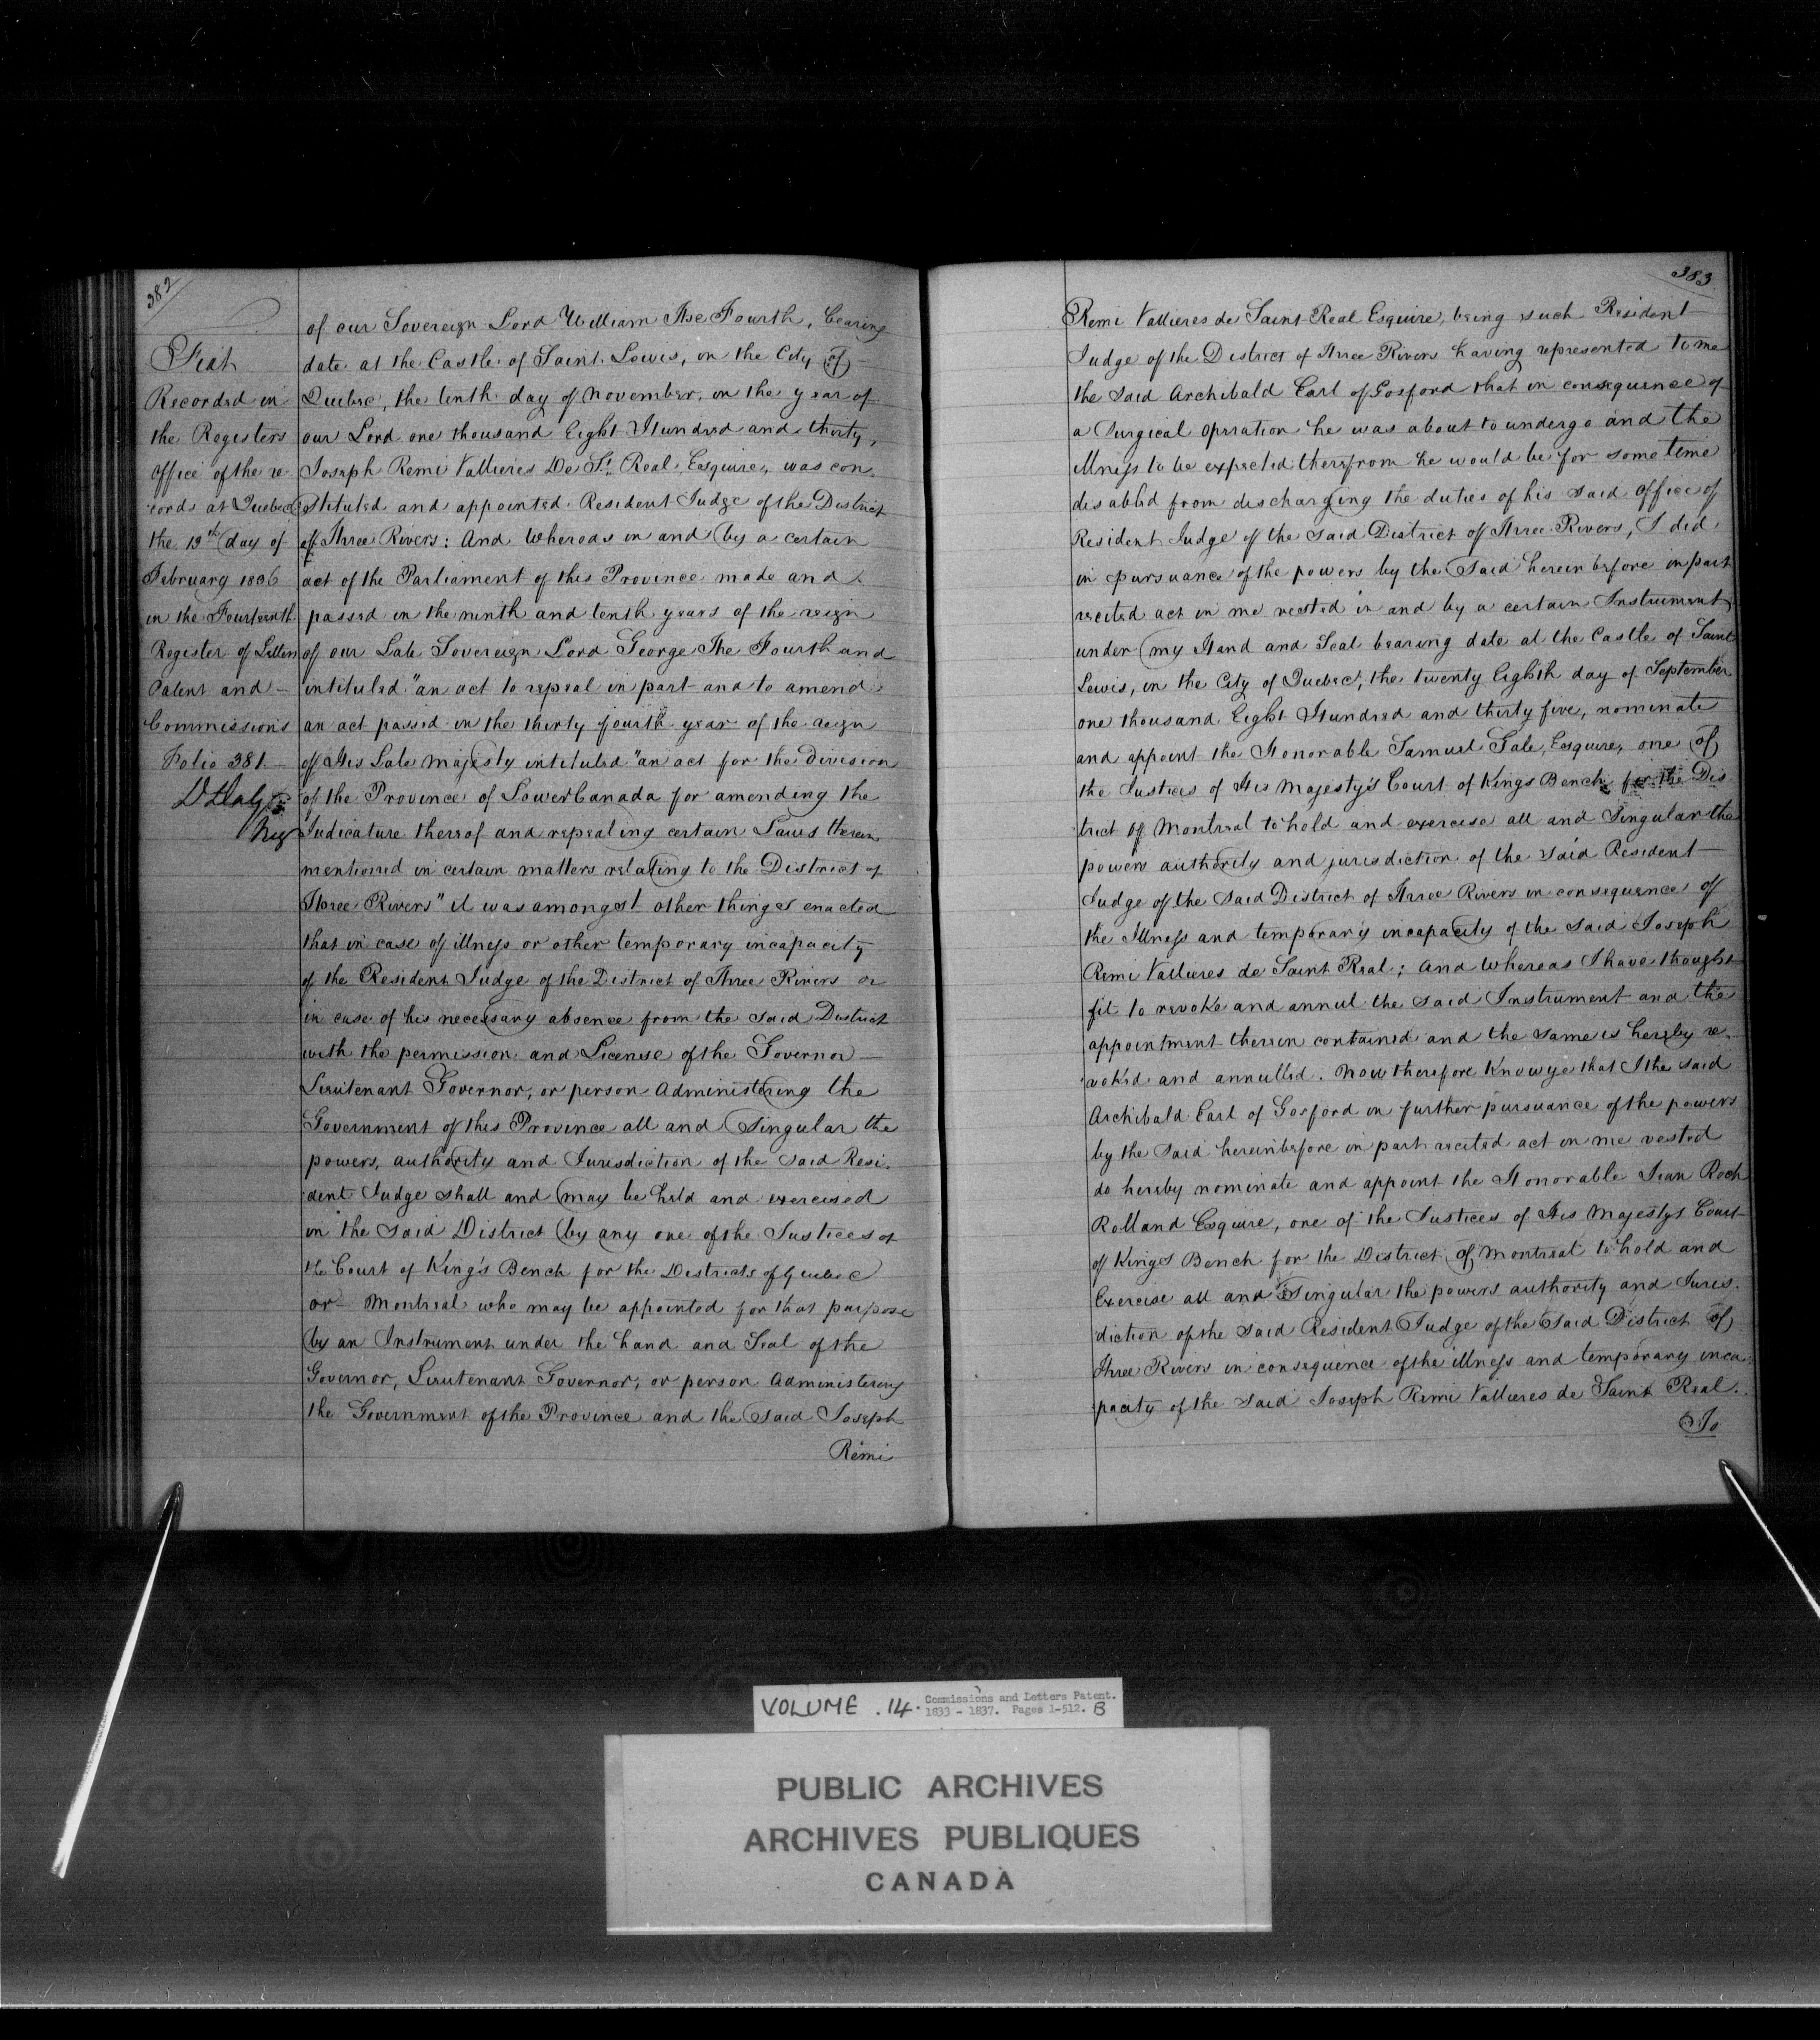 382
Fiat
Recorded in
the Registers
office of the re-
cords at Quebec
the 19th day of
February 1836
in the Fourteenth
Register of Letters
Patent and -
Commissions
Folio 381. -
D Daly
Reg
of our Sovereign Lord William The Fourth, bearing
date at the Castle of Saint Lewis, in the City of -
Quebec, the tenth day of November, in the year of
our Lord one thousand Eight Hundred and thirty,
Joseph Remi Vallieres De St. Real, Esquire, was con-
stituted and appointed Resident Judge of the District
of Three Rivers: And Whereas in and by a certain
act of the Parliament of this Province made and
passed in the ninth and tenth years of the reign
of our Late Sovereign Lord George The Fourth and
intituled "an act to repeal in part and to amend
an act passed in the thirty fourth year of the reign
of His Late Majesty intituled "an act for the division
of the Province of Lower Canada for amending the
Judicature thereof and repealing certain Laws therein
mentioned in certain matters relating to the District of
Three Rivers" it was amongst other things enacted
that in case of illness or other temporary incapacity
of the Resident Judge of the District of Three Rivers or
in case of his necessary absence from the said District
with the permission and License of the Governor -
Lieutenant Governor, or person administering the
Government of this Province all and Singular the
powers, authority and Jurisdiction of the said Resi-
dent Judge shall and may be held and exercised
in the said District by any one of the Justices of
the Court of King's Bench for the Districts of Quebec
or - Montreal who may be appointed for that purpose
by an Instrument under the hand and Seal of the
Governor, Lieutenant Governor, or person Administering
the Government of the Province and the said Joseph
Remi
383
Remi Vallieres de Saint Real Esquire, being such Resident
Judge of the District of Three Rivers having represented to me
the said Archibald Earl of Gosford that in consequence of
a Surgical operation he was about to undergo and the
illness to be expected therefrom he would be for some time
disabled from discharging the duties of his said office of
Resident Judge of the said District of Three Rivers, I did
in pursuance of the powers by the Said herein before in part
recited act in me vested in and by a certain Instrument
under my Hand and Seal bearing date at the Castle of Saint
Lewis, in the City of Quebec, the twenty Eighth day of September
one thousand Eight Hundred and thirty five, nominate
and appoint the Honorable Samuel Gale, Esquire, one of
the Justices of His Majesty's Court of Kings Bench for the Dis-
trict of Montreal to hold and exercise all and Singular the
powers authority and jurisdiction of the said Resident
Judge of the said District of Three Rivers in consequence of
the Illness and temporary incapacity of the said Joseph
Remi Vallieres de Saint Real; and whereas I have thought
fit to revoke and annul the said Instrument and the
appointment therein contained and the same is hereby re-
voked and annulled. Now therefore Know ye that I the said
Archibald Earl of Gosford in further pursuance of the powers
by the said hereinbefore in part recited act in me vested
do hereby nominate and appoint the Honorable Jean Roch
Rolland Esquire, one of the Justices of His Majestys Court
of King's Bench for the District of Montreal to hold and
Exercise all and Singular the powers authority and Juris-
diction of the said Resident Judge of the said District of
Three Rivers in consequence of the illness and temporary inca-
pacity of the said Joseph Remi Vallieres de Saint Real.
To
VOLUME .14. Commissions and Letters Patent.
1833 - 1837. Pages 1-512. B
PUBLIC ARCHIVES
ARCHIVES PUBLIQUES
CANADA